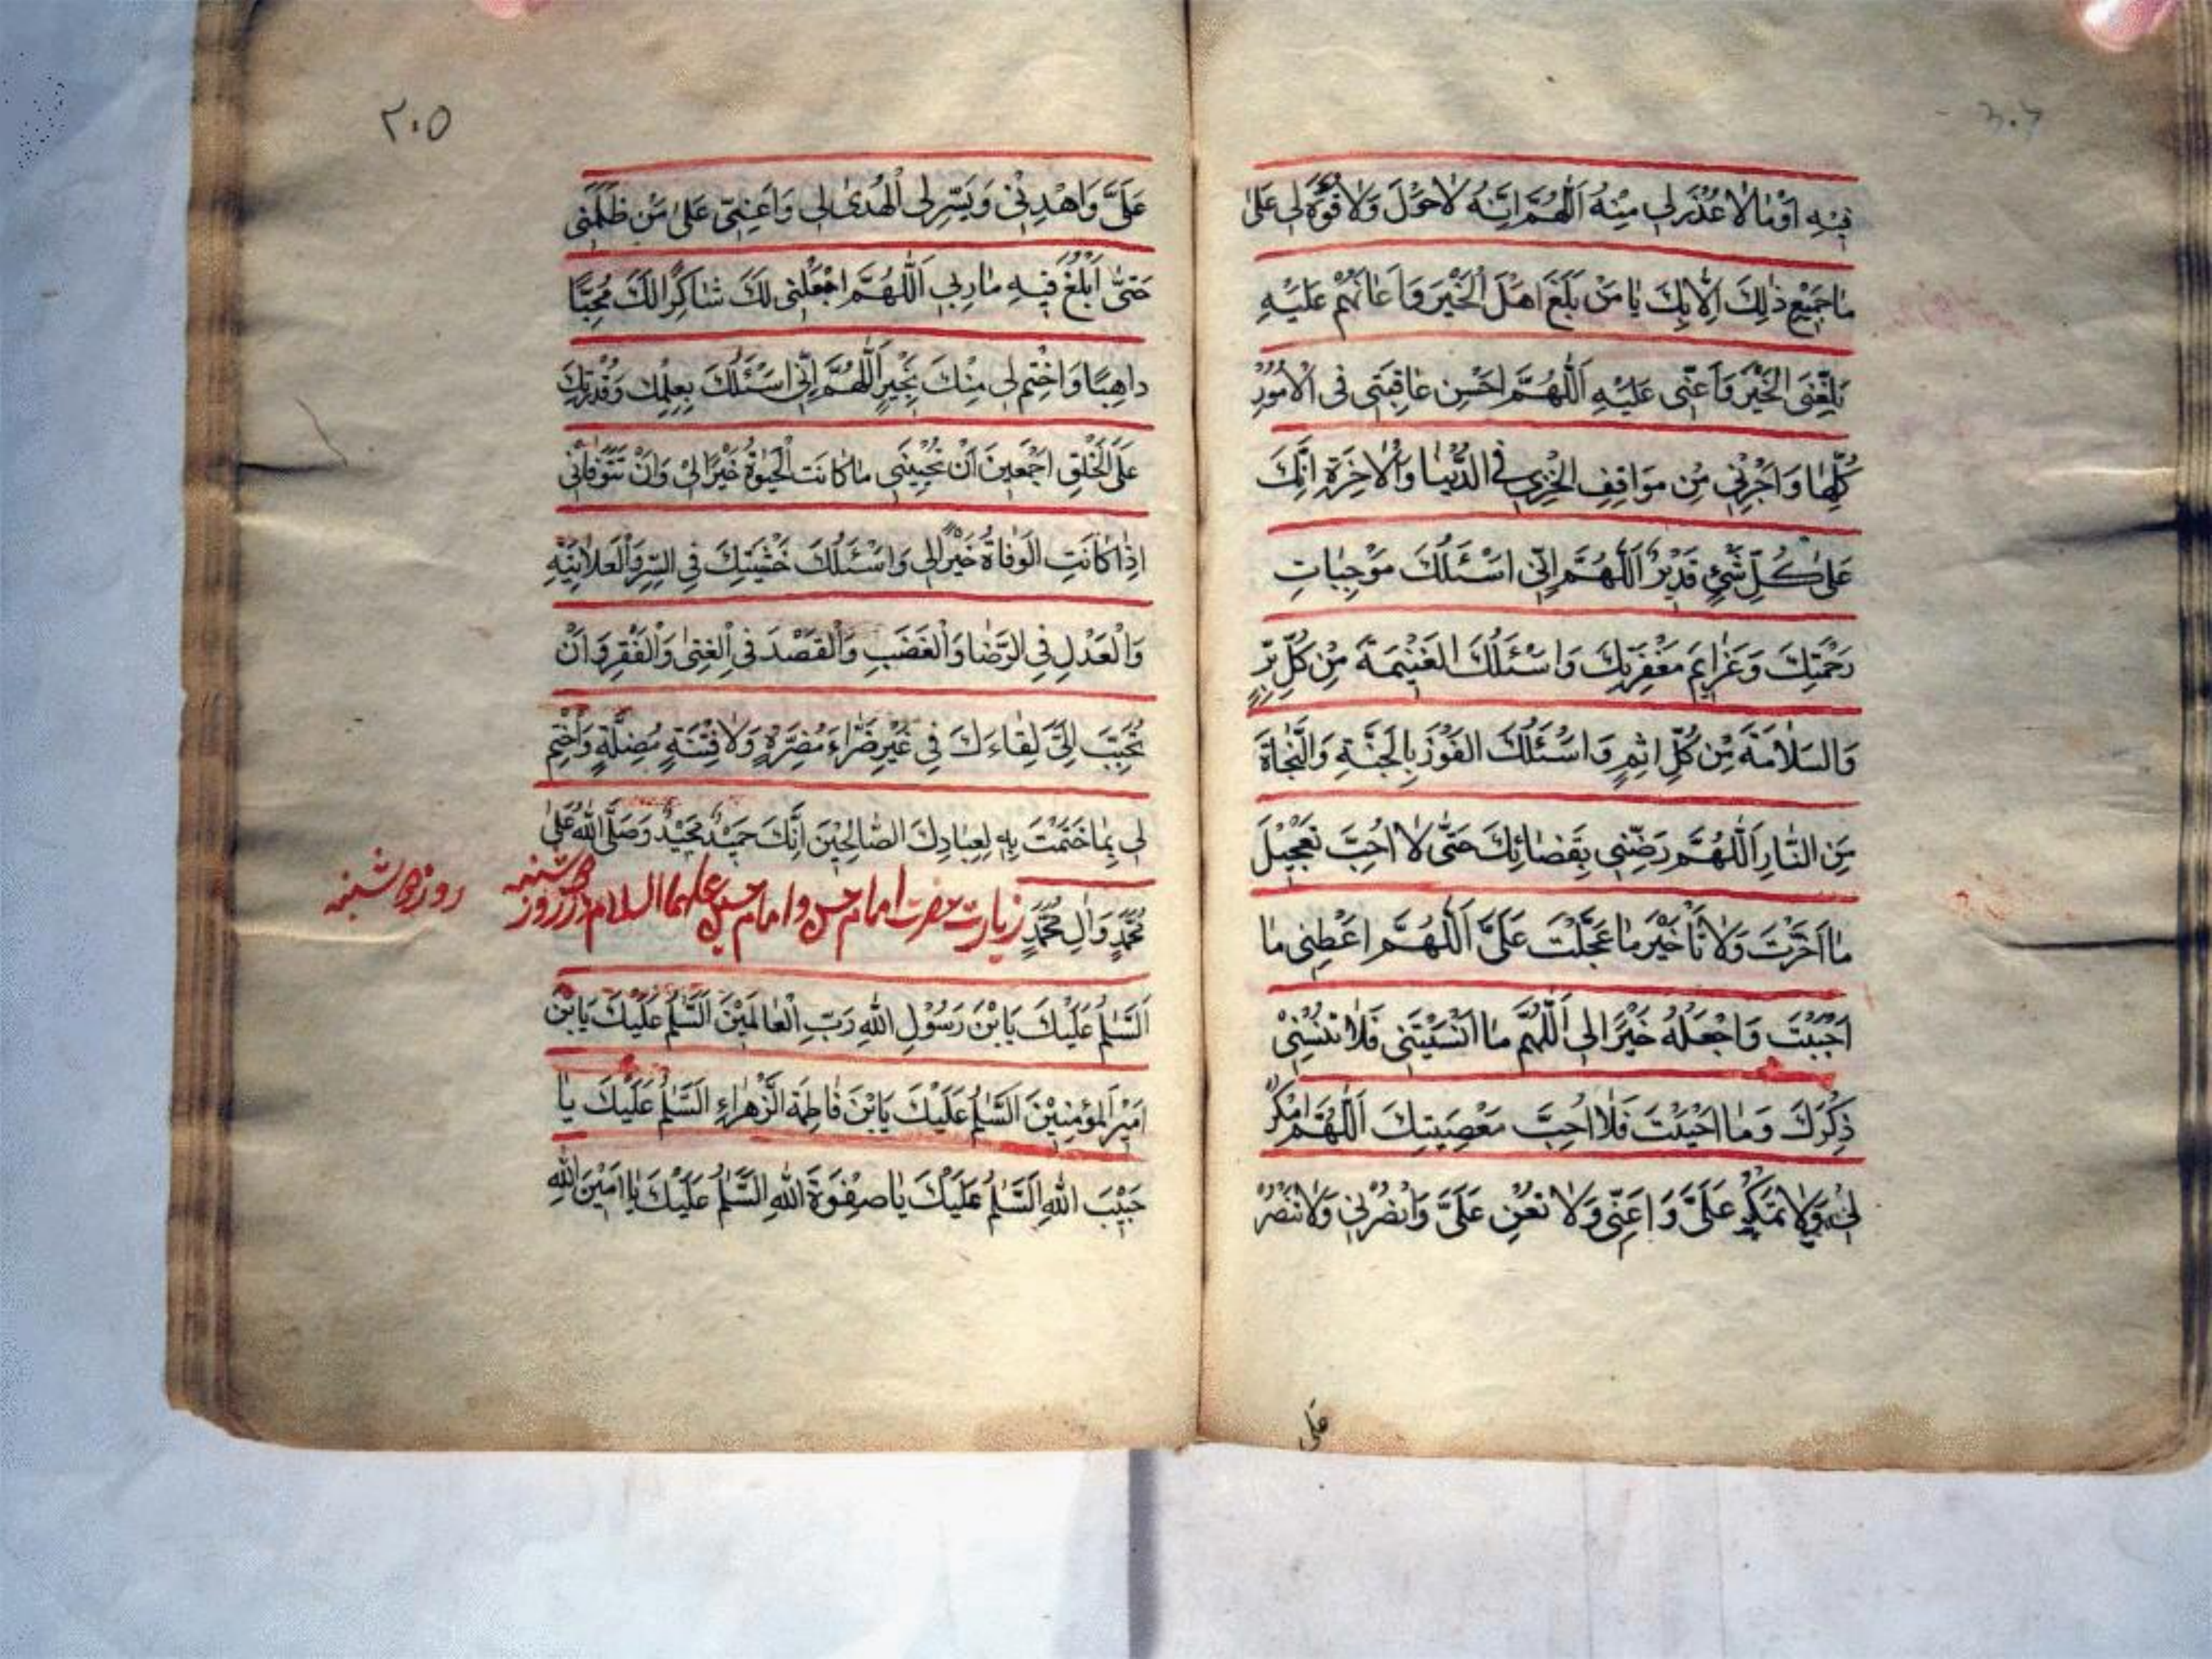 فِيهِ اَوْ مَا لَا عُذْرَ لِي مِنْهُ اَللّٰهُمَّ اِنَّهُ لَا حَوْلَ وَلَا قُوَّةَ لِي عَلٰى
مَا جَمِيْعِ ذٰلِكَ اِلَّا بِكَ يَا مَنْ بَلَّغَ اَهْلَ الْخَيْرَ وَاَعَانَهُمْ عَلَيْهِ
بَلِّغْنِي الْخَيْرَ وَاَعِنِّي عَلَيْهِ اَللّٰهُمَّ اَحْسِنْ عَاقِبَتِي فِي الْاُمُوْرِ
كُلِّهَا وَاَجِرْنِي مِنْ مَوَاقِفِ الْخِزْيِ فِي الدُّنْيَا وَالْاٰخِرَةِ اِنَّكَ
عَلٰى كُلِّ شَيْءٍ قَدِيْرٌ اَللّٰهُمَّ اِنِّي اَسْئَلُكَ مُوْجِبَاتِ
رَحْمَتِكَ وَعَزَايِمَ مَغْفِرَتِكَ وَاَسْئَلُكَ الْغَنِيْمَةَ مِنْ كُلِّ بِرٍّ
وَالسَّلَامَةَ مِنْ كُلِّ اِثْمٍ وَاَسْئَلُكَ الْفَوْزَ بِالْجَنَّةِ وَالنَّجَاةَ
مِنَ النَّارِ اَللّٰهُمَّ رَضِّنِي بِقَضَائِكَ حَتّٰى لَا اُحِبَّ تَعْجِيْلَ
مَا اَخَّرْتَ وَلَا تَأْخِيْرَ مَا عَجَّلْتَ عَلَيَّ اَللّٰهُمَّ اَعْطِنِي مَا
اَحْبَبْتَ وَاجْعَلْهُ خَيْرًا لِي اَللّٰهُمَّ مَا اَنْسَيْتَنِي فَلَا تُنْسِنِيْ
ذِكْرَكَ وَمَا اَحْبَبْتَ فَلَا اُحِبَّ مَعْصِيَتِكَ اَللّٰهُمَّ امْكُرْ
لِي وَلَا تَمْكُرْ عَلَيَّ وَاَعِنِّي وَلَا تُعِنْ عَلَيَّ وَانْصُرْنِي وَلَا تَنْصُرْ
عَلَى
٢٠٥
عَلَيَّ وَاهْدِنِيْ وَيَسِّرْ لِي الْهُدٰى لِي وَاَعِنِّيْ عَلٰى مَنْ ظَلَمَنِي
حَتّٰى اَبْلُغَ فِيْهِ مَاٰرِبِي اَللّٰهُمَّ اجْعَلْنِي لَكَ شَاكِرًا لَكَ مُحِبًّا
دَاهِبًا وَاخْتِمْ لِي مِنْكَ بِخَيْرٍ اَللّٰهُمَّ اِنِّي اَسْئَلُكَ بِعِلْمِكَ وَقُدْرَتِكَ
عَلَى الْخَلْقِ اَجْمَعِيْنَ اَنْ تُحْيِيَنِي مَا كَانَتِ الْحَيٰوةُ خَيْرًا لِيْ وَاَنْ تَتَوَفَّانِي
اِذَا كَانَتِ الْوَفَاةُ خَيْرًا لِي وَاَسْئَلُكَ خَشْيَتِكَ فِي السِّرِّ وَالْعَلَانِيَةِ
وَالْعَدْلِ فِي الرِّضَا وَالْغَضَبِ وَالْقَصْدَ فِي الْغِنٰى وَالْفَقْرِ وَاَنْ
تُحَبِّبَ اِلَيَّ لِقَاءَكَ فِي غَيْرِ ضَرَّاءَ مُضِرَّةٍ وَلَا فِتْنَةٍ مُضِلَّةٍ وَاخْتِمْ
لِي بِمَا خَتَمْتَ بِهِ لِعِبَادِكَ الصَّالِحِيْنَ اِنَّكَ حَمِيْدٌ مَجِيْدٌ وَصَلَّى اللّٰهُ عَلٰى
مُحَمَّدٍ وَاٰلِ مُحَمَّدٍ زيارت حضرت امام حسن و امام حسين عليهما السلام در روز دوشنبه
روز دوشنبه
اَلسَّلٰمُ عَلَيْكَ يَا بْنَ رَسُوْلِ اللّٰهِ رَبِّ الْعَالَمِيْنَ اَلسَّلٰمُ عَلَيْكَ يَا بْنَ
اَمِيْرِ الْمُؤْمِنِيْنَ اَلسَّلٰمُ عَلَيْكَ يَا بْنَ فَاطِمَةَ الزَّهْرَاءِ اَلسَّلٰمُ عَلَيْكَ يَا
حَبِيْبَ اللّٰهِ اَلسَّلٰمُ عَلَيْكَ يَا صِفْوَةَ اللّٰهِ اَلسَّلٰمُ عَلَيْكَ يَا اَمِيْنَ اللّٰهِ